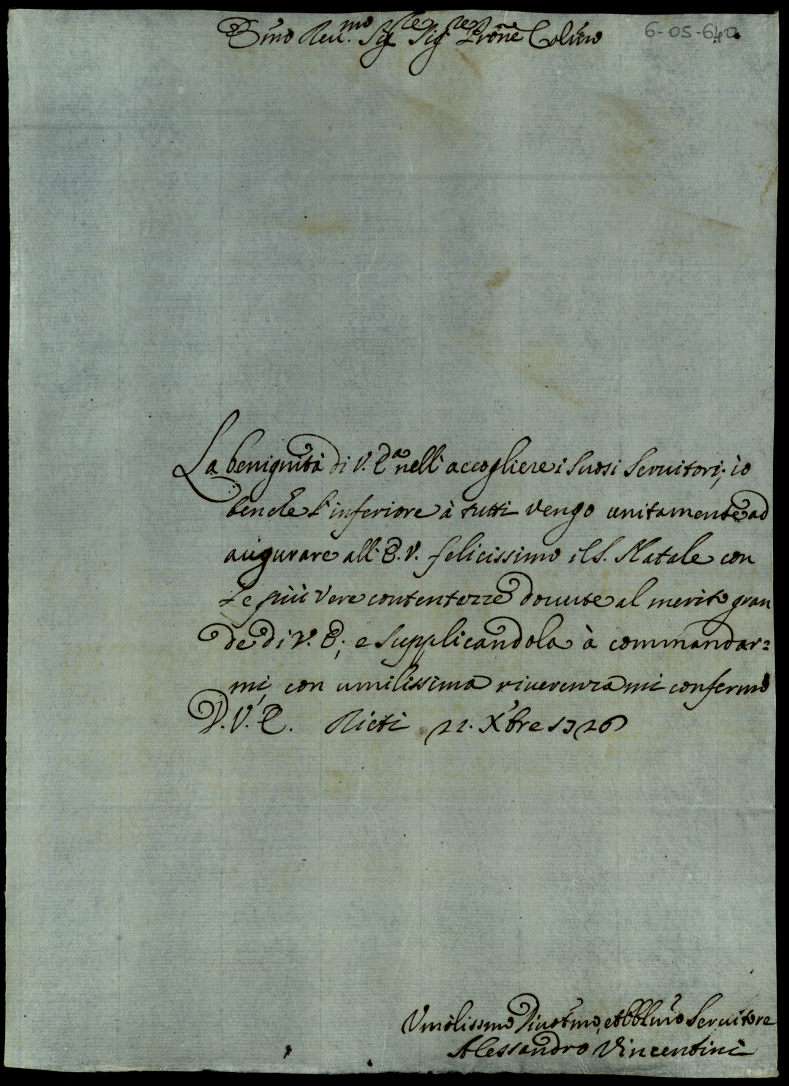 Emo Reu.mo Sig.re Sig.re Prōne Colmo
6-05-640
La benignità di V. E.a nell'accogliere i Suoi Seruitori, io
benche l'inferiore à tutti vengo unitamente ad
augurare all'E.V. felicissimo il S. Natale con
le più vere contentezze douute al merito gran
de di V. E; e Supplicandola à commandar=
mi, con umilissima riuerenza mi confermo
D. V. E. Rieti 22. Xbre 1726
Vmilissimo Diuotmo, et Obblmo Seruitore
Alessandro Vincentini